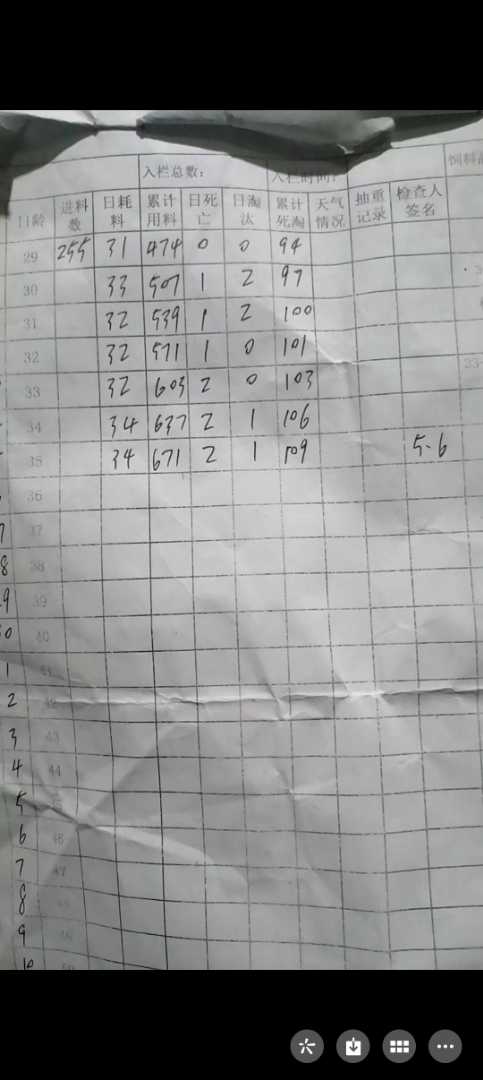 入栏总数： 入栏时间： 饲料
日龄 进料数 日耗料 累计用料 日死亡 日淘汰 累计死淘 天气情况 抽重记录 检查人签名
29 255 31 474 0 0 94
30 33 507 1 2 97
31 32 539 1 2 100
32 32 571 1 0 101
33 32 603 2 0 103
34 34 637 2 1 106
35 34 671 2 1 109 5.6
36
7 37
8 38
9 39
40
1 41
2 42
3 43
4 44
5
6 46
7 47
8
9
10